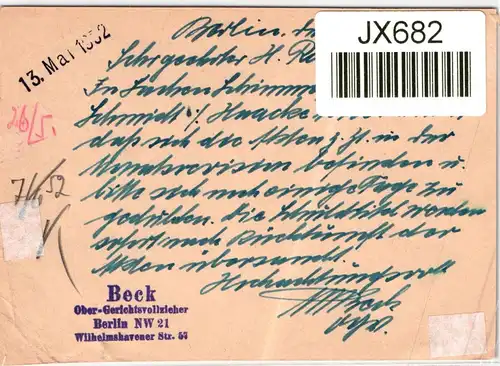 JX682
13. Mai 1952
Berlin, d
Sehr geehrter H. Re
In Sachen Schimm
Schmidt ./. Haacke
daß sich die Akten z. Zt. in der
Monatsrevision befinden u.
bitte sich noch einige Tage zu
gedulden. Die Schuldtitel werden
sofort nach Rückkunft der
Akten übersandt.
Hochachtungsvoll
Beck
Ogv.
26/5.
Beck
Ober-Gerichtsvollzieher
Berlin NW 21
Wilhelmshavener Str. 57